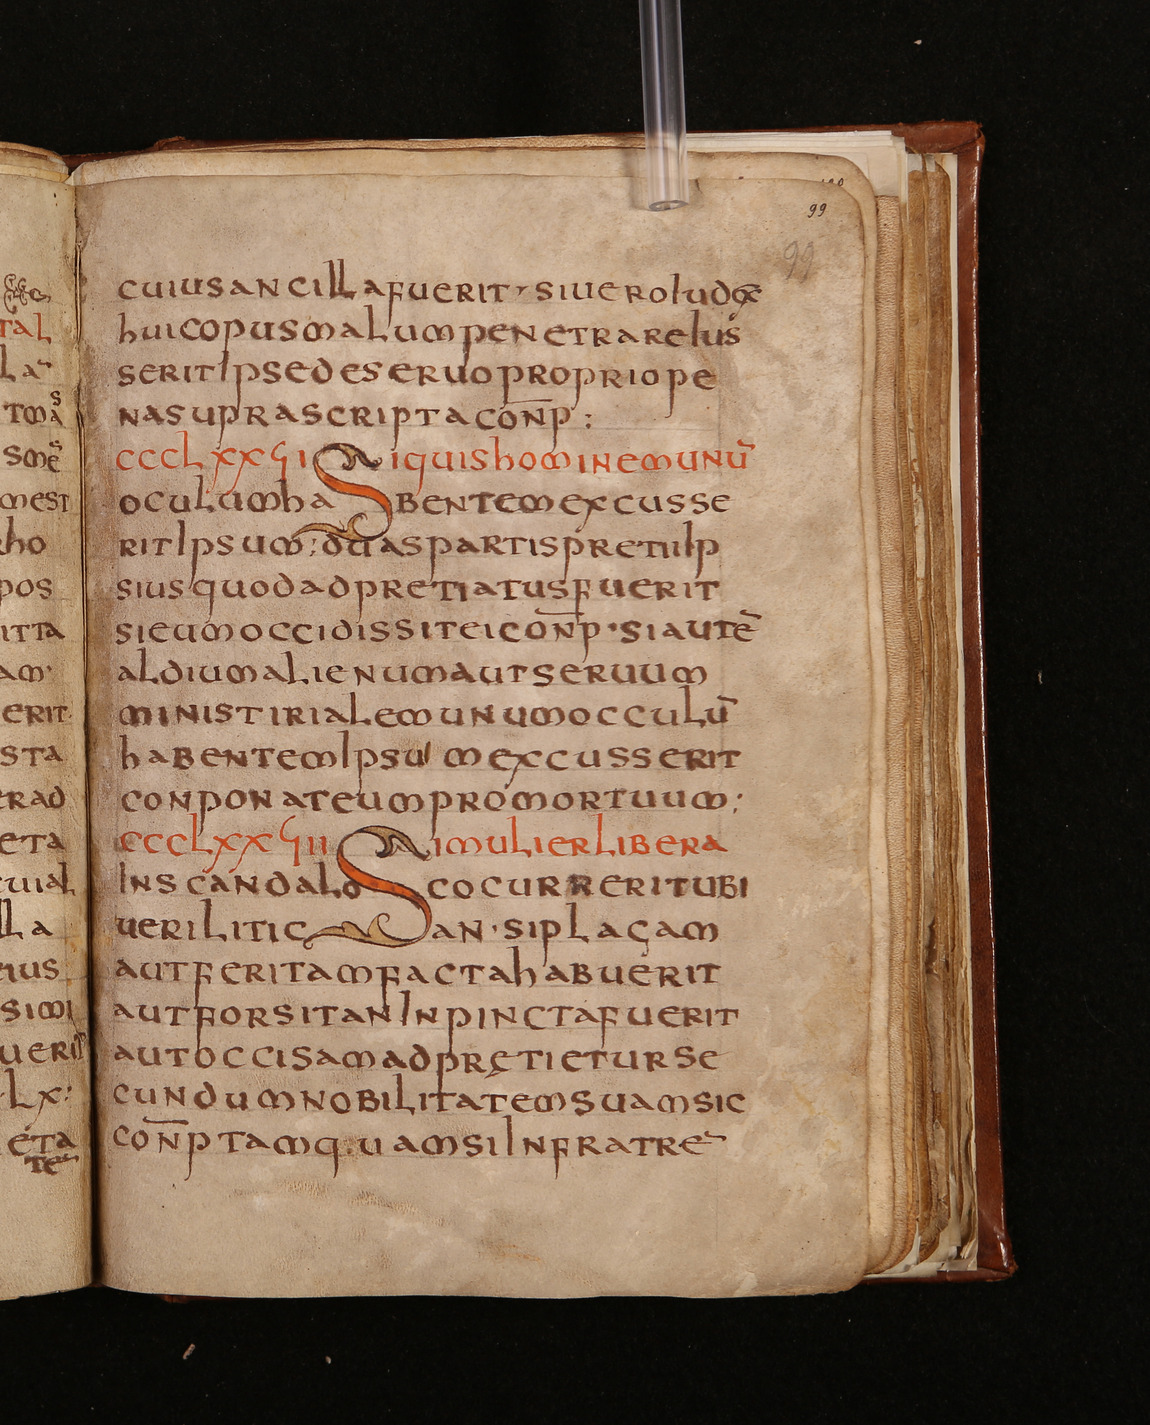 99
99
cuius ancilla fuerit · siue roi ludęx
huic opus malum penetrare ius
serit ipse de seruo proprio pe
na suprascripta con̄p :
CCCLXXϛI Si quis hominem unū
oculum habentem excusse
rit ipsum; duas partis pretii ip
sius quod adpretiatus fuerit
si eum occidissit ei con̄p · si autē
aldium alienum aut seruum
ministirialem unum occulū
habentem ipsum excusserit
conponat eum pro mortuum;
CCCLXXϛII Si mulier libera
in scandalo cocurrerit ubi
uerilitic an · si plaçam
aut feritam facta habuerit
aut forsitan inpincta fuerit
aut occisam adprętietur se
cundum nobilitatem suam sic
con̄p tamquam si in fratre